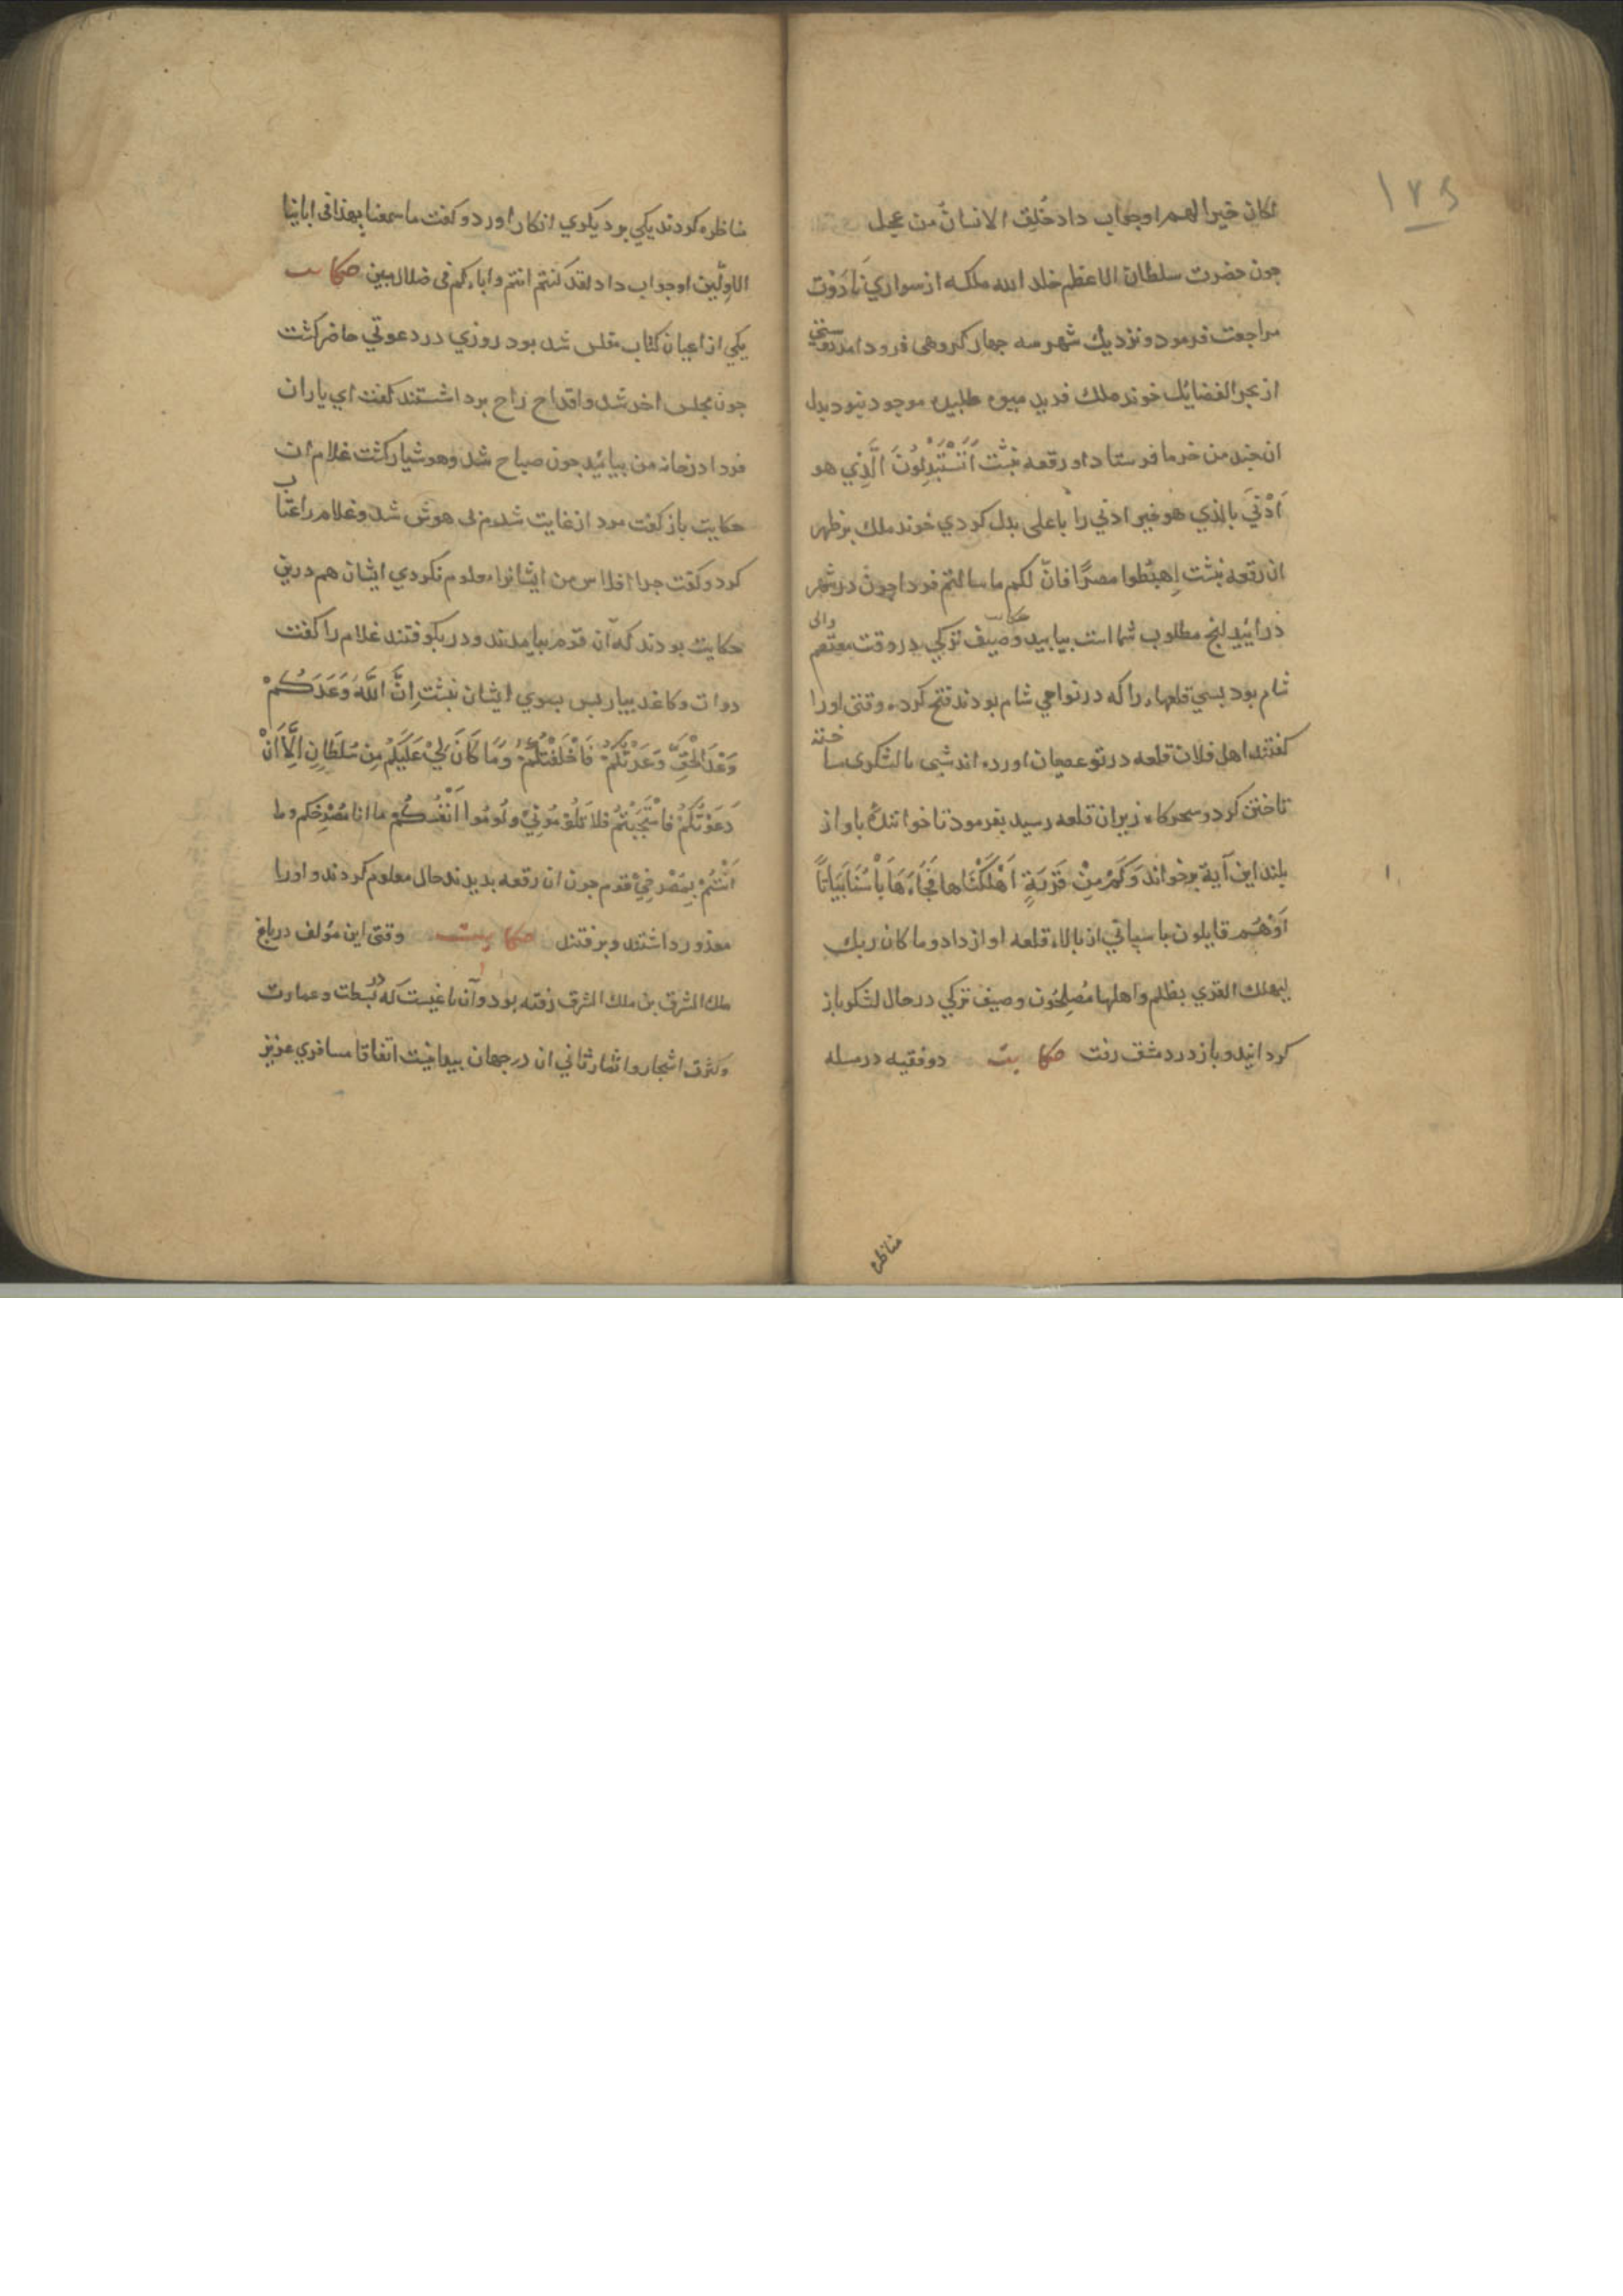 ۱۲۵
لكان خيرا لهم او جواب داد خُلِقَ الانسانُ من عجل
جون حضرت سلطان الاعظم خلد الله ملكه از سواري
مراجعت فرمود و نزديك شهر سه جهار كروهى فرود امد
از بحر الفضايل خوند ملك فريد ميوه طلبيد موجود نبود بدل
ان جند من خرما فرستاد او رقعه نبشت اَتَسْتَبْدِلُونَ الَّذِي هو
اَدْنَي بالذي هو خير ادني را باعلى بدل كردي خوند ملك بر ظهر
ان رقعه نبشت اِهبِطوا مصرًا فانّ لكم ما سالتم فردا جون در شهر
درائيد انج مطلوب شما است بيابيد حكايت وصيف تركي در وقت معتصم والى
شام بود بسي قلعهاء را كه در نواحي شام بودند فتح كرده وقتى اورا
كفتند اهل فلان قلعه در تو عصيان اورده اند شبى با لشكرى ساخته
تاختن كرد و سحركاه زير ان قلعه رسيد بفرمود تا خوانندهٔ باواز
بلند اين آية برخواند وَكَمْ مِنْ قَرْيَةٍ اَهْلَكْنَاها فَجَاءَهَا بَأْسُنَا بَيَاتًا
اَوْهُم قايلون باسباني از بالاء قلعه اواز داد و ما كان ربك
ليهلك القري بظلم و اهلها مُصلِحُون وصيف تركي در حال لشكر باز
كردانيد و باز در دمشق رفت حكايت دو فقيه در مسله
مناظره
مناظره كردند يكي بر ديكري انكار اورد و كفت ما سمعنا بهذا فى ابائنا
الاوّلين او جواب داد لقد كنتم انتم و اباءكم فى ضلال مبين حكايت
يكي از اعيان كتاب مفلس شد بود روزي در دعوتي حاضر كشت
جون مجلس اخر شد و اقداح راح برداشتند كفت اي ياران
فردا در خانه من بيائيد جون صباح شد و هوشيار كشت غلام ان
حكايت باز كفت مرد از غايت شرم بى هوش شد و غلام را عتاب
كرد و كفت جرا افلاس من ايشانرا معلوم نكردي ايشان هم درين
حكايت بودند كه آن قوم بيامدند و در بكوفتند غلام را كفت
دوات و كاغذ بيار بس بسوي ايشان نبشت اِنَّ اللَّهَ وَعَدَكُمْ
وَعْدَ الْحَقِّ وَعَدْتُكُمْ فَاَخْلَفْتُكُمْ وَمَا كَانَ لِيْ عَلَيكُم مِن سُلطَانٍ اِلَّا اَنْ
دَعَوْتُكُمْ فَاسْتَجَبْتُمْ فَلا تَلُوْمُونِيْ وَلُومُوا اَنْفُسَكُمْ ما انا بمُصْرِخكم وما
اَنْتُمْ بِمُصْرِخِيَّ قوم جون ان رقعه بديدند حال معلوم كردند و اورا
معذور داشتند و برفتند حكايت وقتى اين مؤلف در باغ
ملك الشرق بن ملك الشرق رفته بود و آن باغيست كه در بَسطت و عمارت
و كثرت اشجار و اثمار ثاني ان در جهان اتفاقا مسافري عزيز